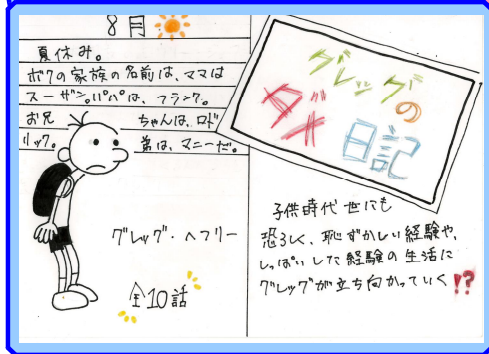 8月
夏休み。
ボクの家族の名前は、ママは
スーザン。パパは、フランク。
お兄ちゃんは、ロド
リック。弟は、マニーだ。
グレッグ・ヘフリー
全10話
グレッグの
ダメ
日記
子供時代 世にも
恐ろしく、恥ずかしい経験や、
しっぱいした経験の生活に
グレッグが立ち向かっていく!?